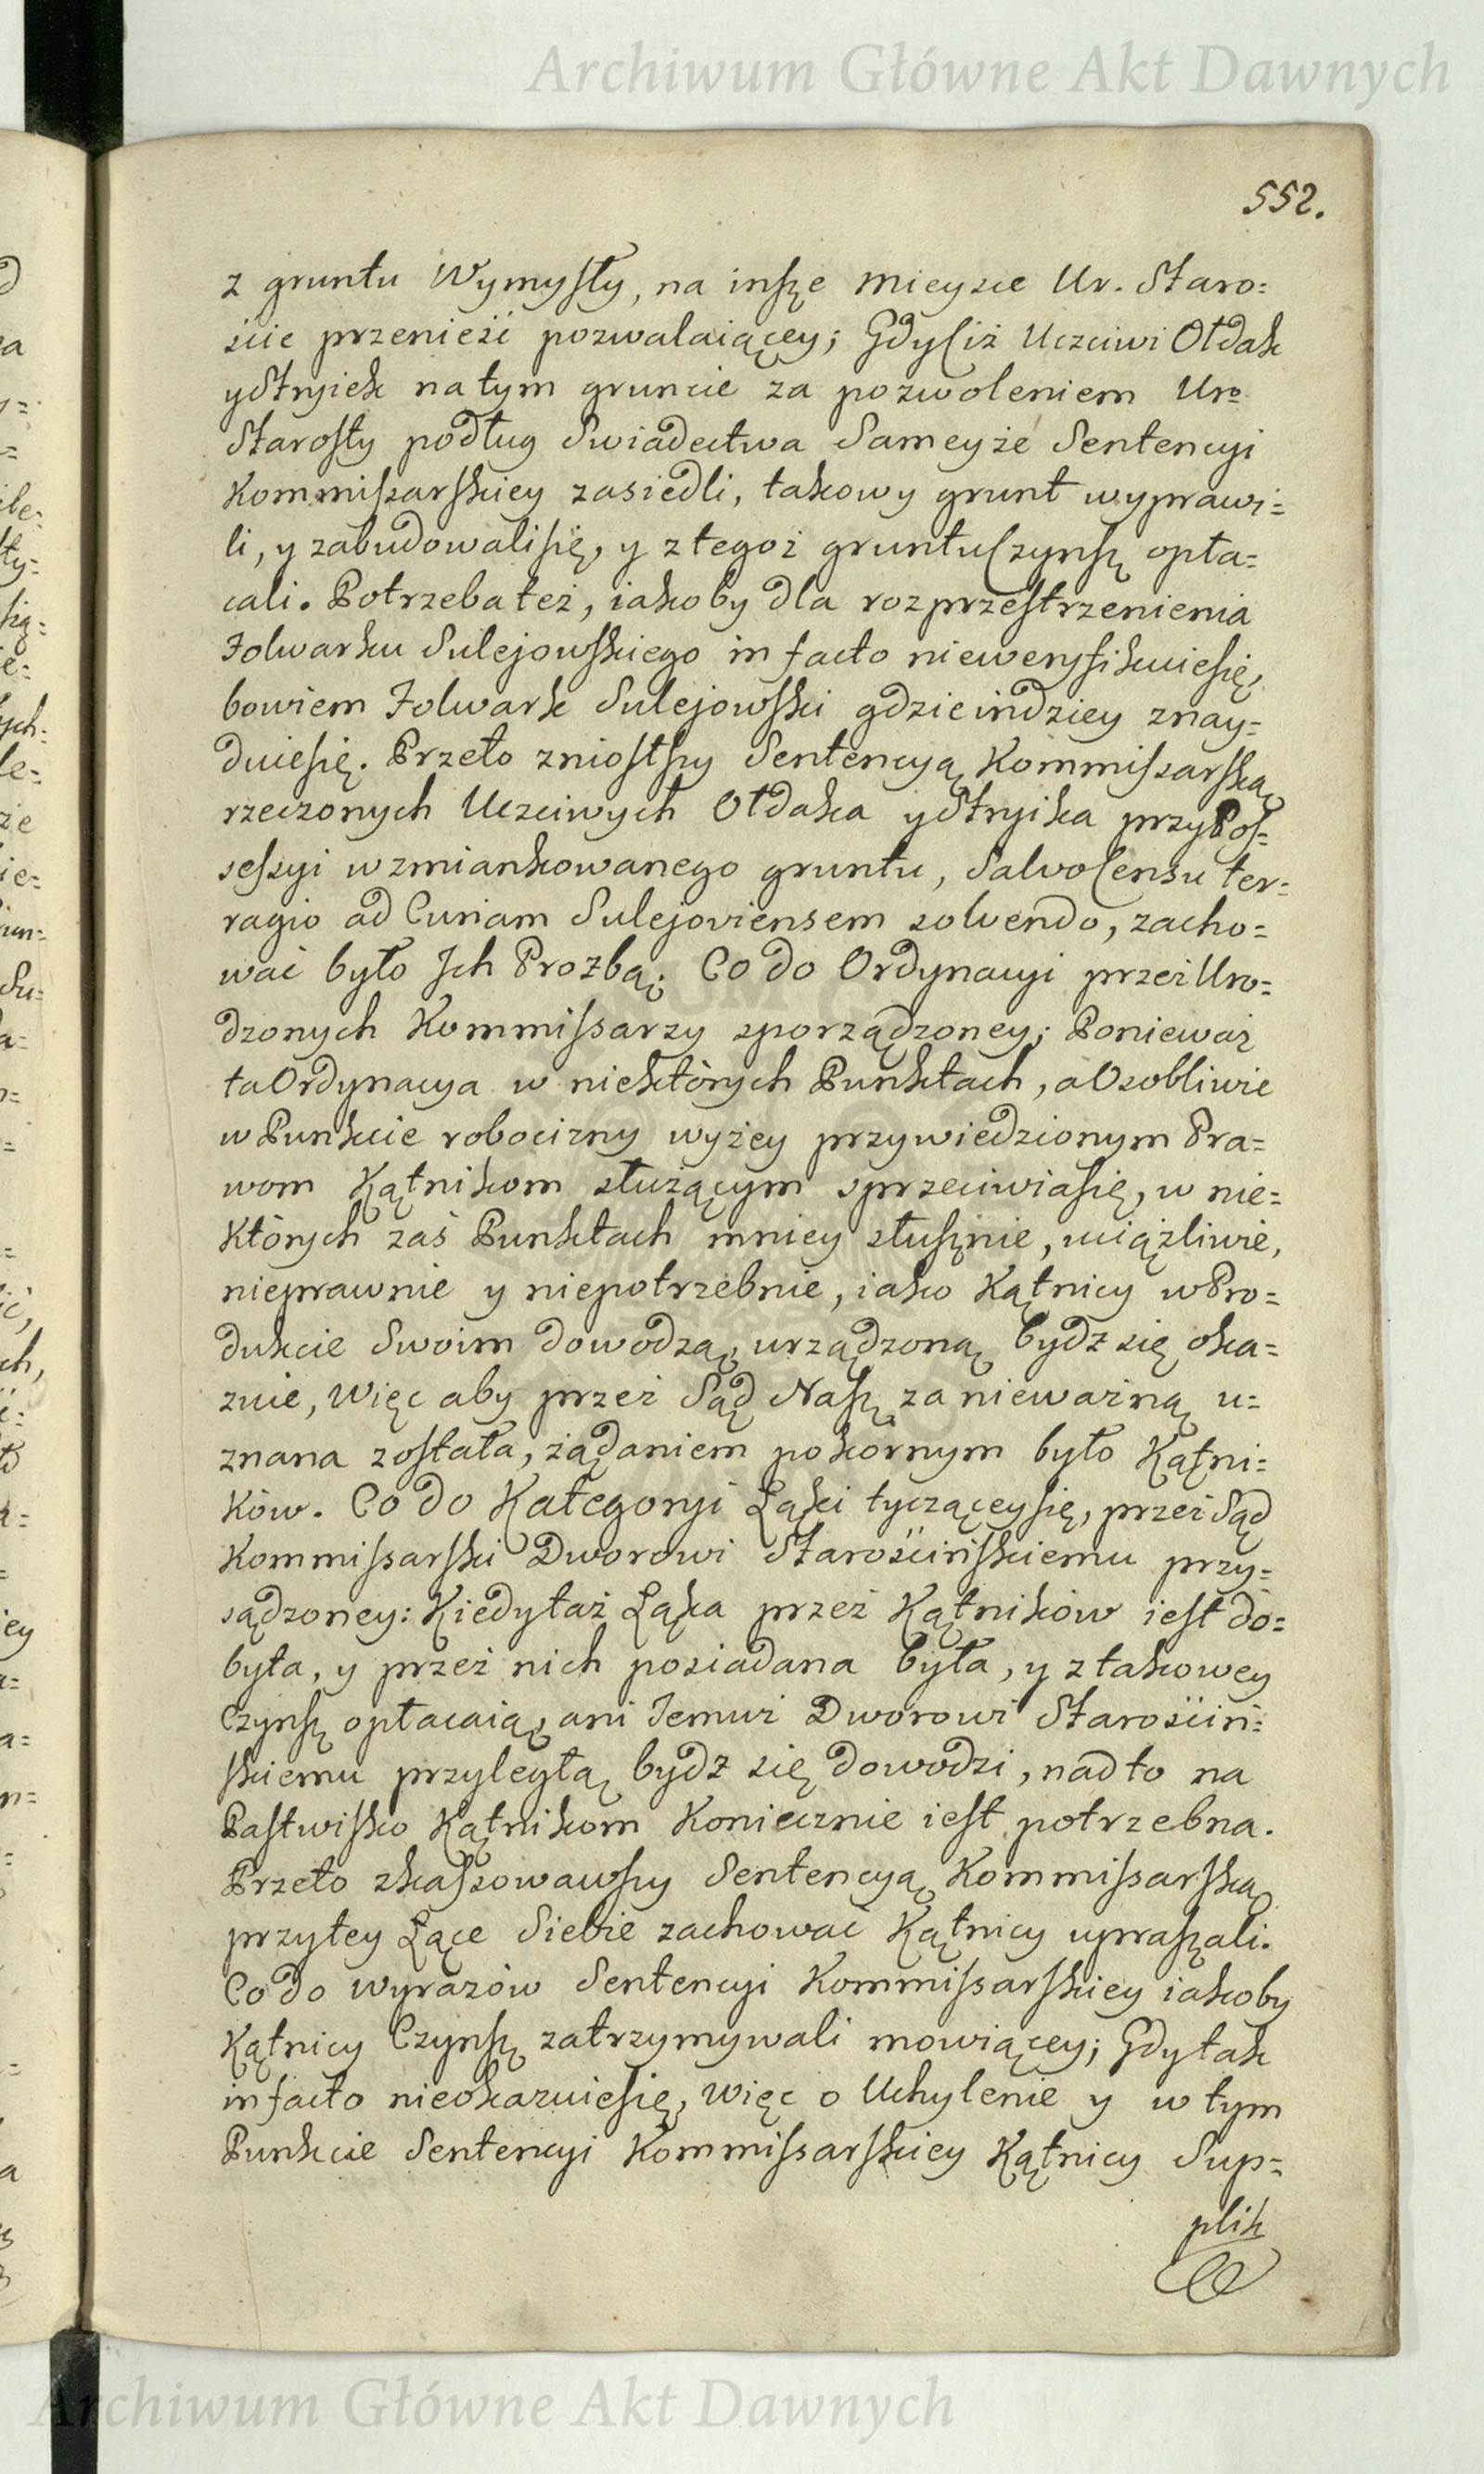 Archiwum Główne Akt Dawnych
552.
z gruntu Wymysły, na insze mieysce Ur. Staro=
ście przenieść pozwalaiącey; Gdysiż Uczciwi Ołdak
y Stryiek na tym gruncie za pozwoleniem Uro
Starosty podług Swiadectwa Sameyże Sentencyi
Kommissarskiey zasiedli, takowy grunt wyprawi=
li, y zabudowali się, y z tegoż gruntu Czynsz opła=
cali. Potrzeba też, iakoby dla rozprzestrzenienia
Folwarku Sulejowskiego in facto nieweryfikuie się,
bowiem Folwark Sulejowski gdzieindziey znay=
duie się. Przeto zniosłszy Sentencyą Kommissarską
rzeczonych Uczciwych Ołdaka y Stryika przy Pos=
sessyi wzmiankowanego gruntu, Salvo Censu ter=
ragio ad Curiam Sulejoviensem solvendo, zacho=
wać było Ich Proźbą. Co do Ordynacyi przez Uro=
dzonych Kommissarzy sporządzoney; Ponieważ
ta Ordynacya w niektórych Punktach, a Osobliwie
w Punkcie robocizny wyżey przywiedzionym Pra=
wom Kątnikom służącym sprzeciwia się, w nie=
których zaś Punktach mniey słusznie, uciążliwie,
nieprawnie y niepotrzebnie, iako Kątnicy w Pro=
dukcie Swoim dowodzą, urządzoną bydz się oka=
zuie, Więc aby przez Sąd Nasz za nieważną u=
znana została, żądaniem pokornym było Kątni=
ków. Co do Kategoryi Łąki tyczącey się, przez Sąd
Kommissarski Dworowi Starościńskiemu przy=
sądzoney: Kiedy taż Łąka przez Kątników iest do=
była, y przez nich posiadana była, y z takowey
Czynsz opłacaią, ani Temuż Dworowi Starościń=
skiemu przyległą bydź się dowodzi, nadto na
Pastwisko Kątnikom Koniecznie iest potrzebna.
Przeto skassowawszy Sentencyą Kommissarską
przy tey Łące Siebie zachować Kątnicy upraszali.
Co do wyrazów Sentencyi Kommissarskiey iakoby
Kątnicy Czynsz zatrzymywali mowiącey; Gdy tak
in facto nieokazuie się, Więc o Uchylenie y w tym
Punkcie Sentencyi Kommissarskiey Kątnicy Sup=
plik
Archiwum Główne Akt Dawnych